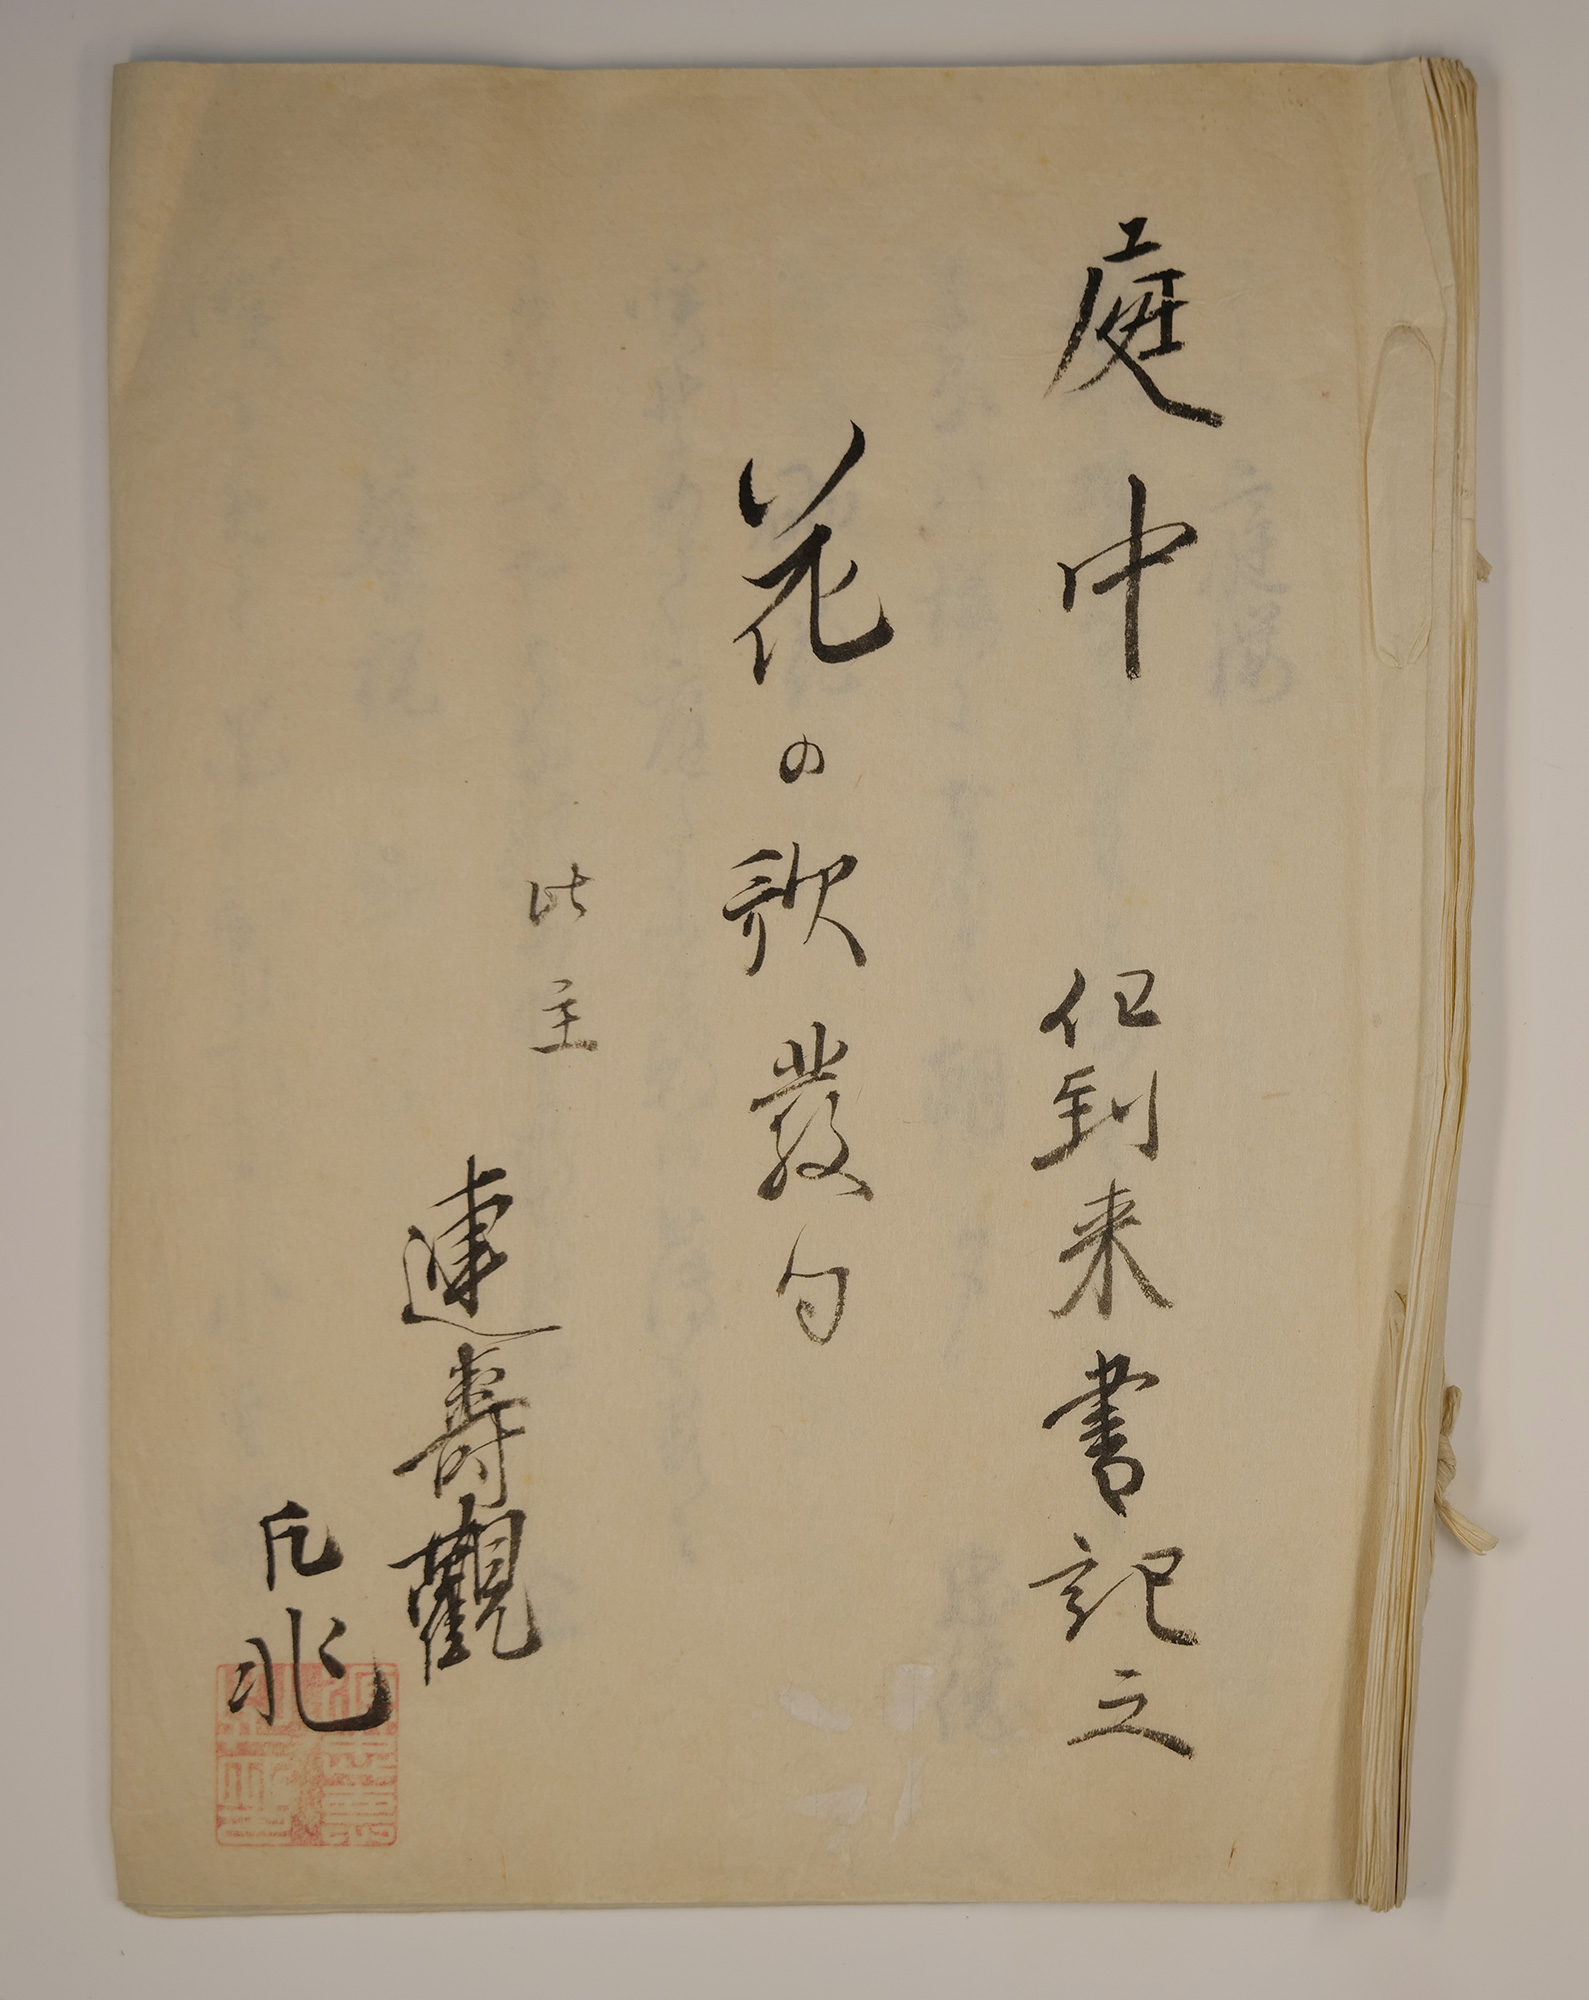 庭中 但到来書記之
花の歌發句
此主
連壽觀
兆